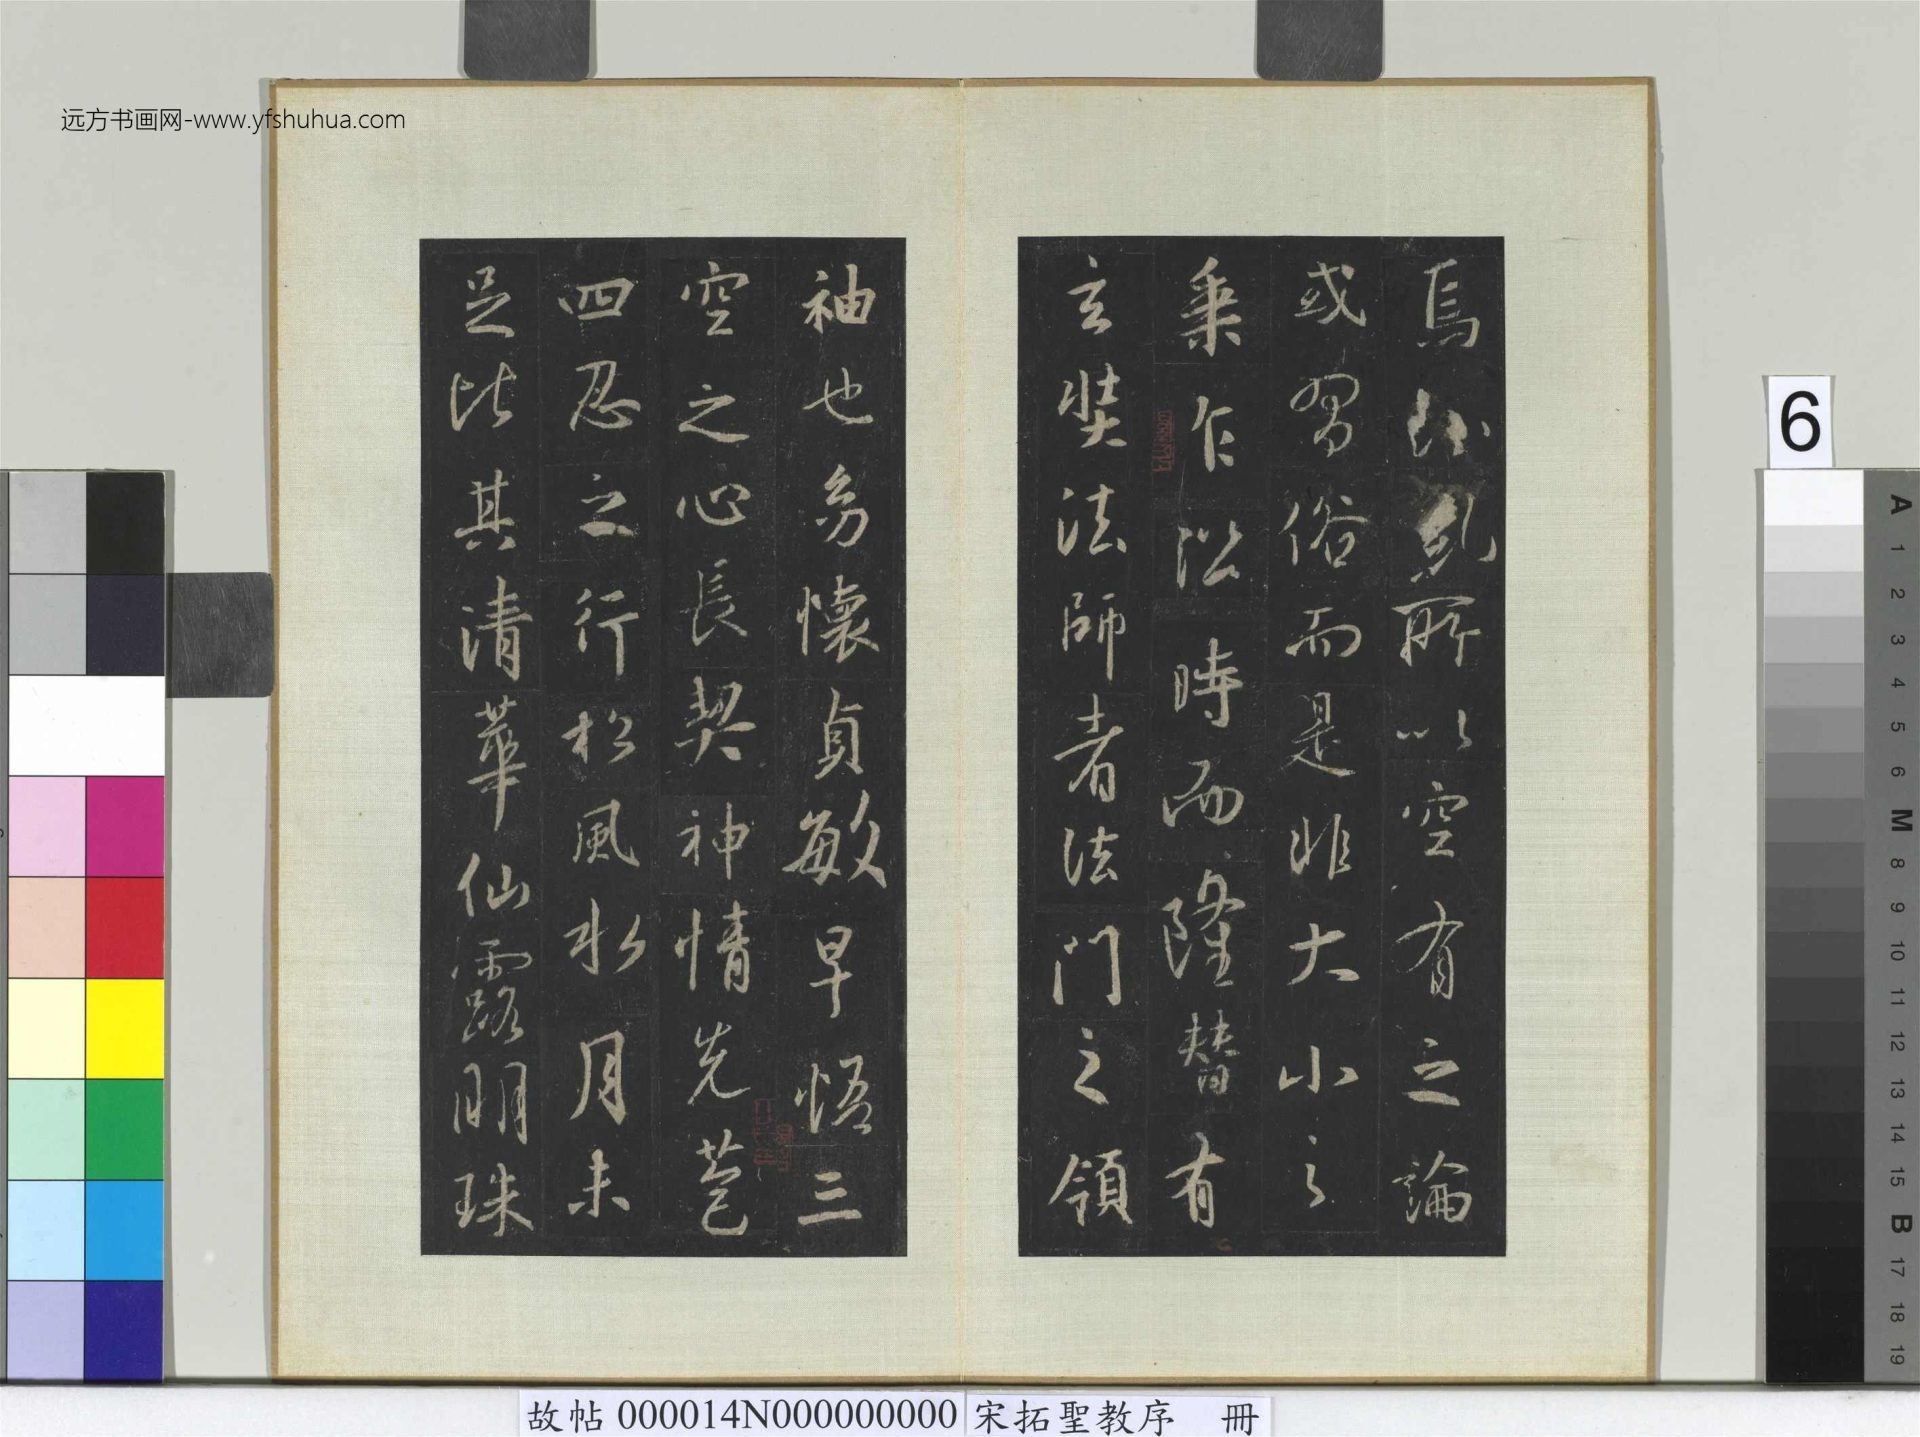 远方书画网-www.yfshuhua.com
焉紏紛所以空有之論
或習俗而是非大小之
乘乍沿時而隆替有
玄奘法師者法門之領
袖也幼懷貞敏早悟三
空之心長契神情先苞
四忍之行松風水月未
足比其清華仙露明珠
6
A
1
2
3
4
5
6
M
8
9
10
11
12
13
14
15
B
17
18
19
故帖 000014N000000000 宋拓聖教序 冊